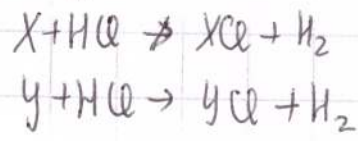 X+HCl ↛ XCl + H₂
Y+HCl → YCl + H₂